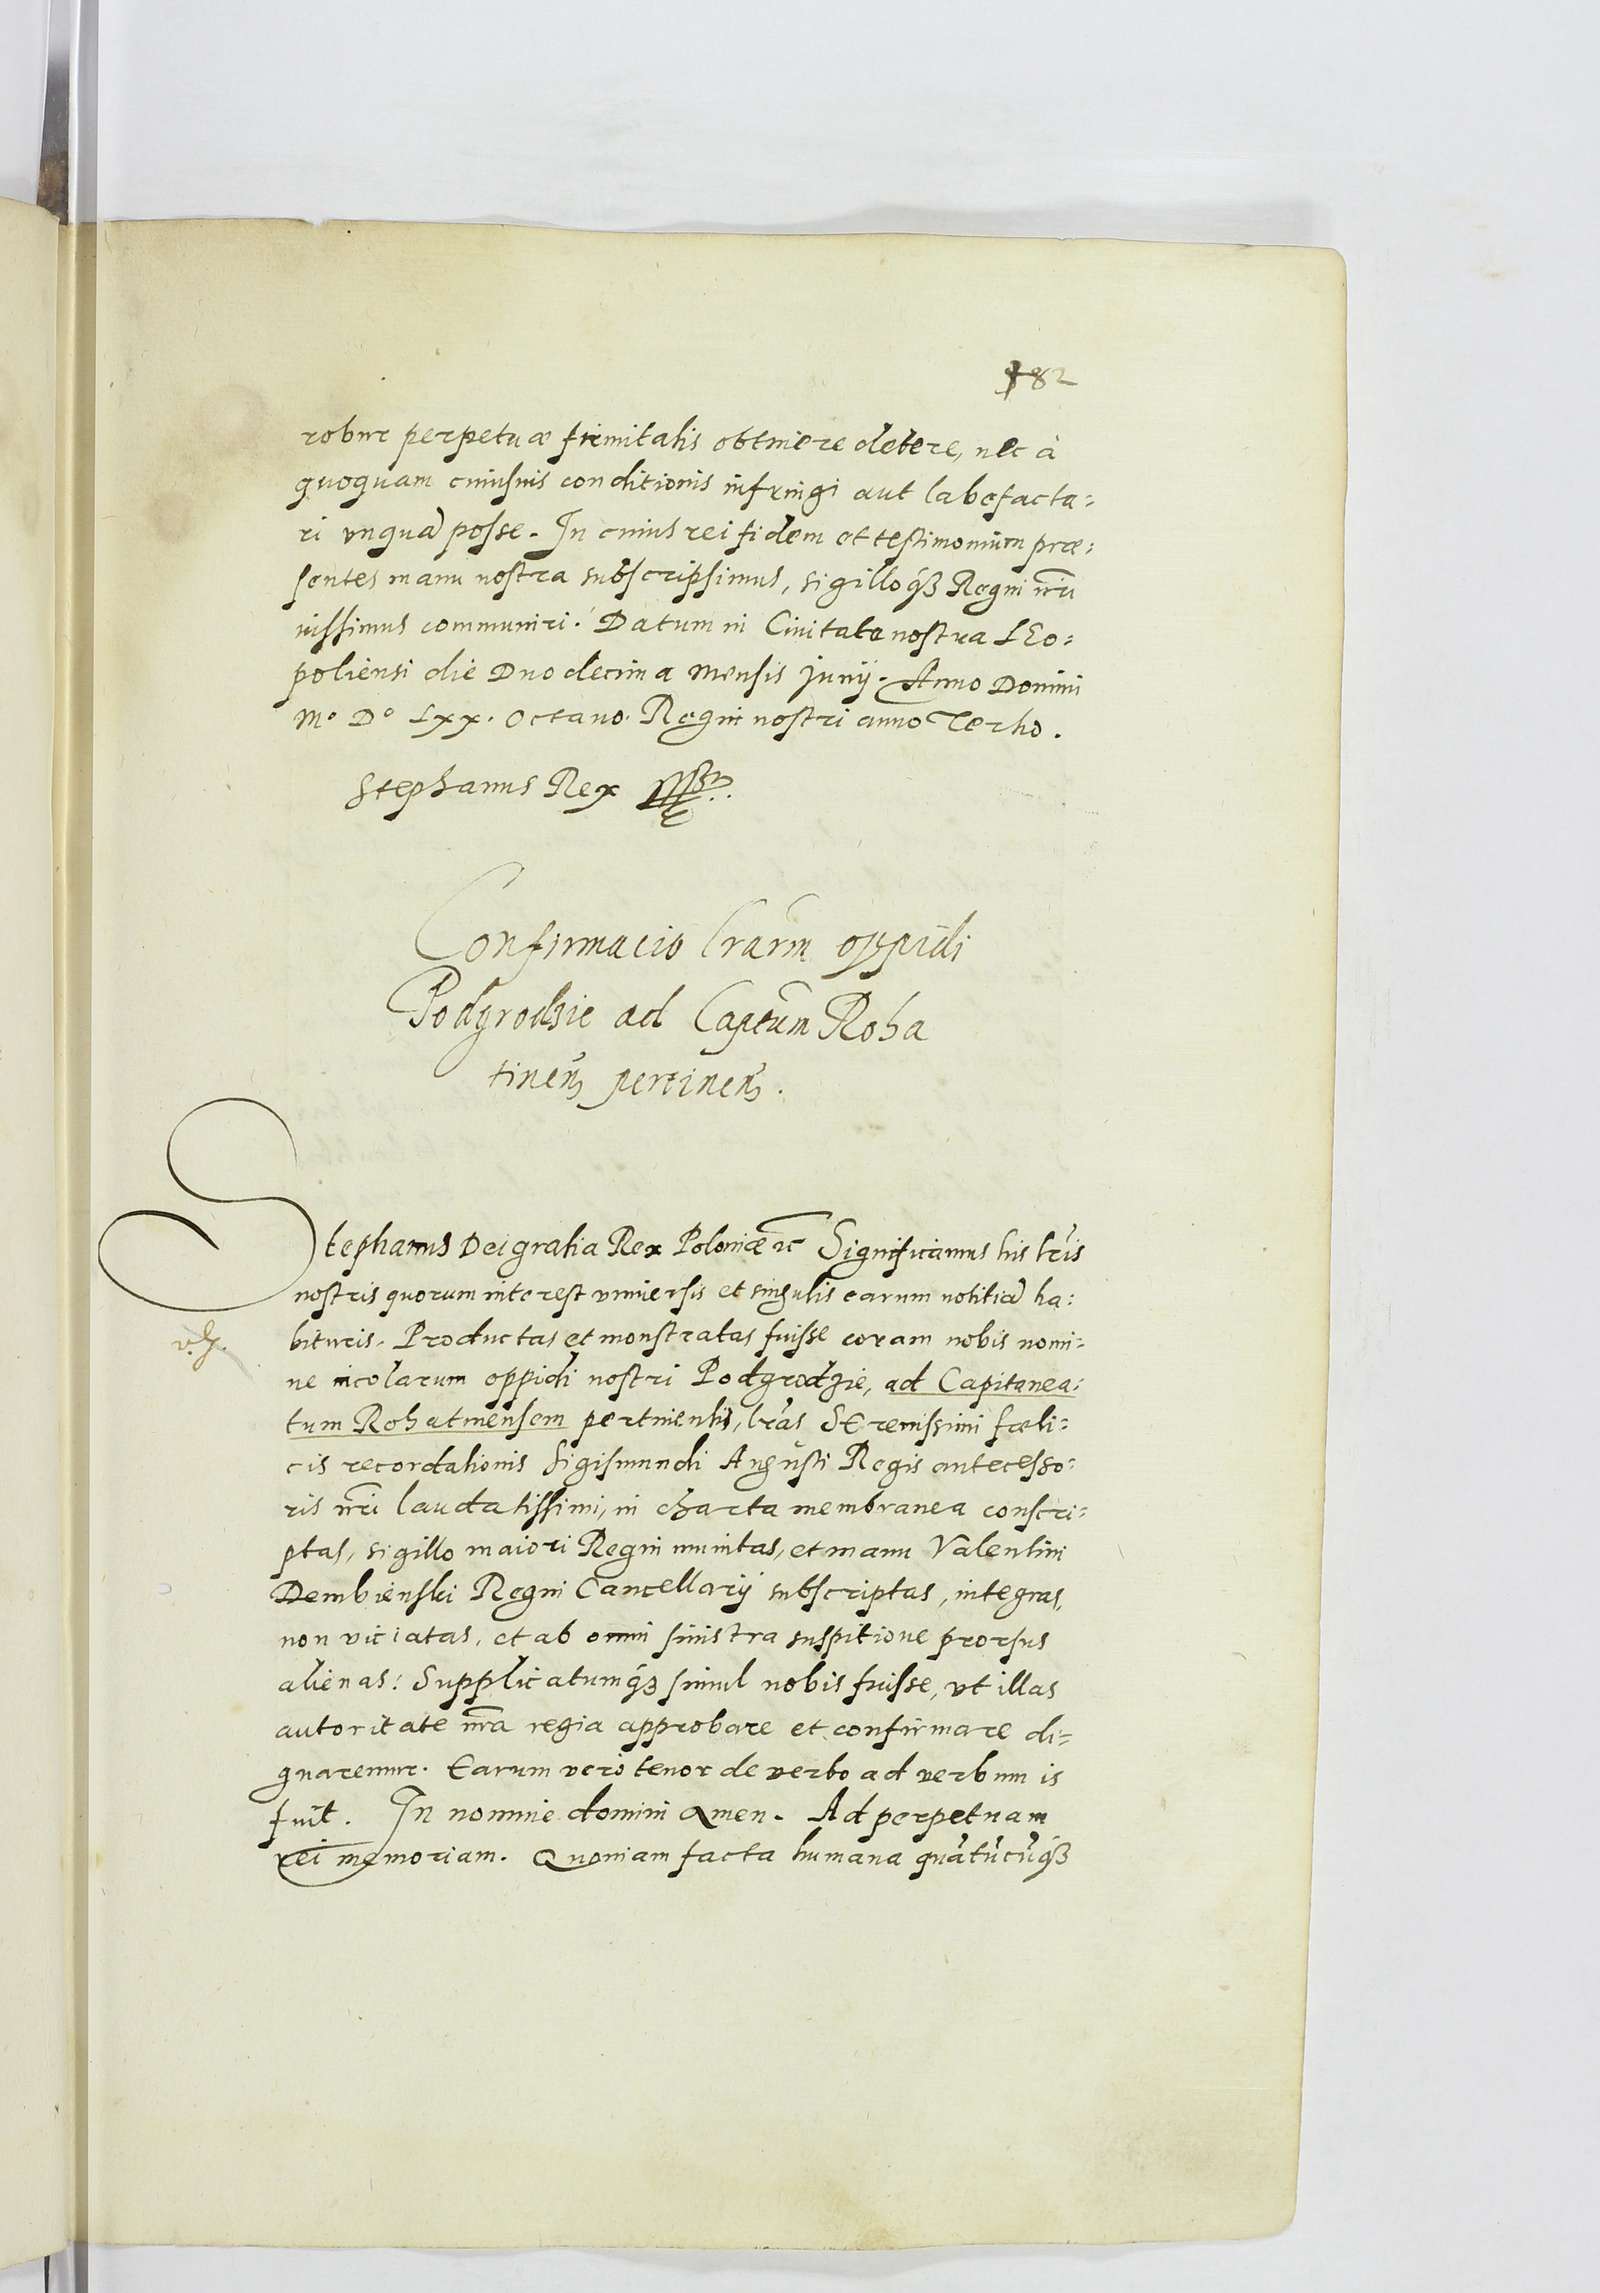 182
robur perpetuæ firmitatis obtinere debere, nec à
quoquam cuiusuis conditionis infringi aut labefacta=
ri vnquã posse. In cuius rei fidem et testimonium præ=
sentes manu nostra subscripsimus, sigilloq3 Regni nr̃i
iussimus communiri. Datum in Ciuitate nostra LEo=
poliensi die Duodecima mensis Junij. Anno Domini
Mº Dº Lxx. Octauo. Regni nostri anno Tertio.
Stephanus Rex
Confirmacio lrarũm oppidi
Podgrodzie ad Captũm Roha
tineñ pertineñ.
Stephanus Dei gratia Rex Poloniæ ꝛc Significamus his lr̃is
nostris quorum interest vniuersis et singulis earum notitiã ha=
bituris. Productas et monstratas fuisse coram nobis nomi=
ne incolarum oppidi nostri Podgrodzie, ad Capitanea=
tum Rohatinensem pertinentis, lr̃as SErenissimi fœli=
cis recordationis Sigismundi Augusti Regis antecesso=
ris nr̃i laudatissimi, in charta membranea conscri=
ptas, sigillo maiori Regni munitas, et manu Valentini
Dembienski Regni Cancellarij subscriptas, integras,
non viciatas, et ab omni sinistra suspitione prorsus
alienas: Supplicatumq3 simul nobis fuisse, vt illas
autoritate nr̃a regia approbare et confirmare di=
gnaremur. Earum vero tenor de verbo ad verbum is
fuit. In nomine domini Amen. Ad perpetuam
rei memoriam. Quoniam facta humana quãtũcũq3